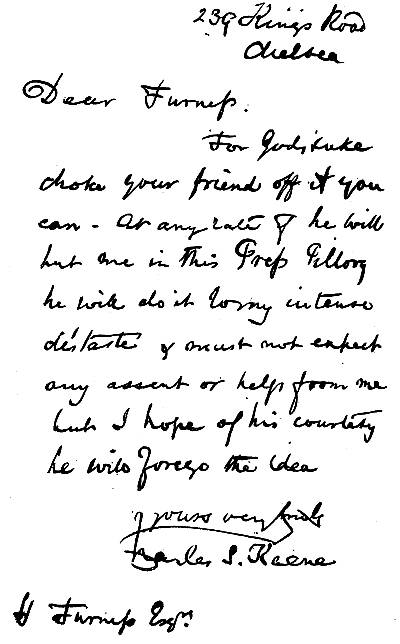 239 King's Road
Chelsea
Dear Furniss.
For God's sake
choke your friend off if you
can - At any rate if he will
put me in this Press Pillory
he will do it to my intense
distaste & must not expect
any assent or help from me
but I hope of his courtesy
he will forego the idea
yours very truly
Charles S. Keene
H Furniss Esqre